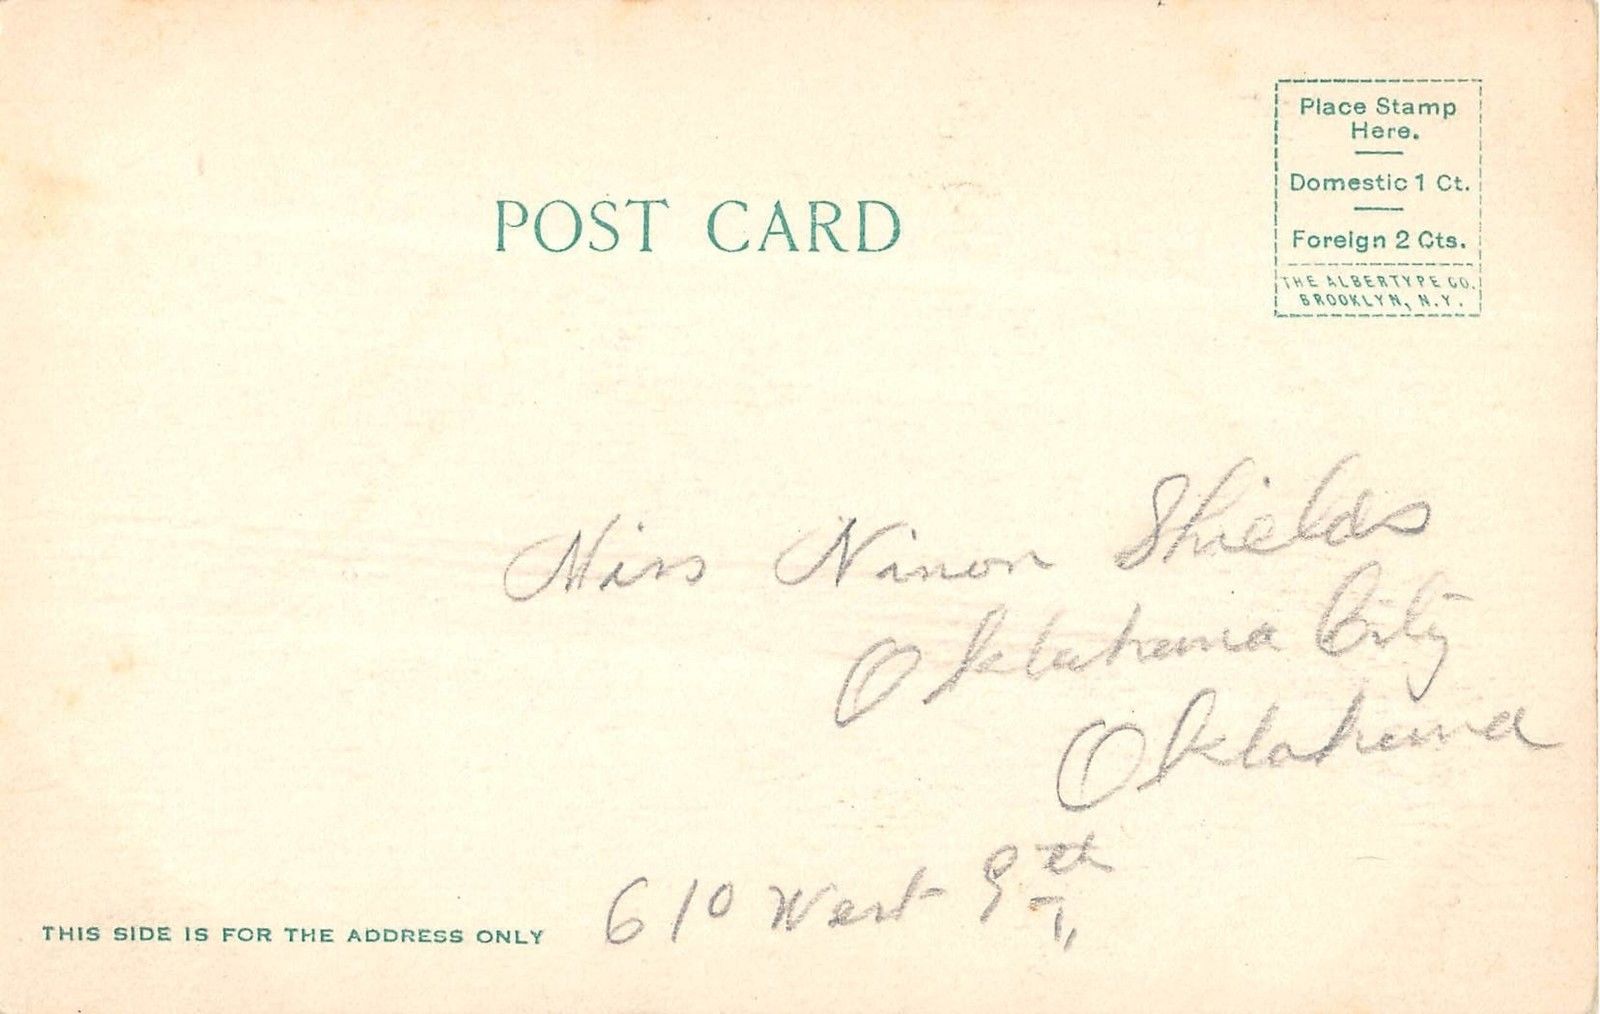 Place Stamp
Here.
Domestic 1 Ct.
Foreign 2 Cts.
THE ALBERTYPE CO.
BROOKLYN, N.Y.
POST CARD
Miss Ninon Shields
Oklahoma City
Oklahoma
610 West 9th
THIS SIDE IS FOR THE ADDRESS ONLY